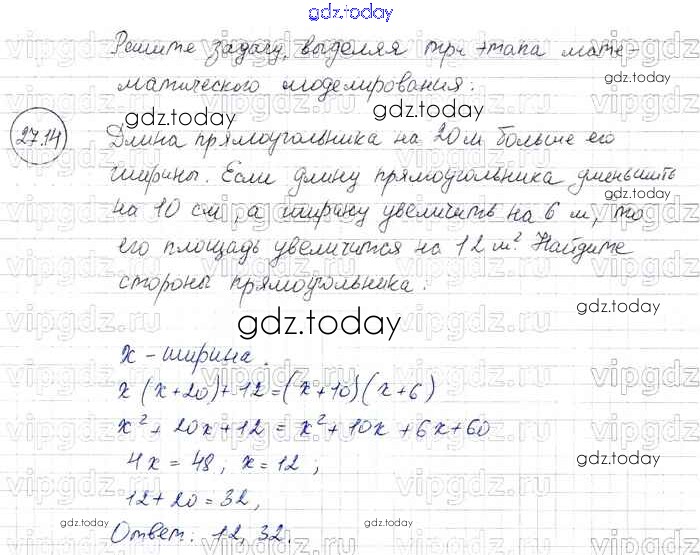 gdz.today
Решите задачу, выделяя три этапа мате-
матического моделирования:
gdz.today
gdz.today
27.14
Длина прямоугольника на 20 м больше его
ширины. Если длину прямоугольника уменьшить
на 10 см, а ширину увеличить на 6 м, то
его площадь увеличится на 12 м² Найдите
стороны прямоугольника.
gdz.today
gdz.today
gdz.today
gdz.today
x - ширина.
x(x+20)+12=(x+10)(x+6)
x²+20x+12 = x²+10x+6x+60
4x = 48; x = 12;
gdz.today
12+20=32,
gdz.today
Ответ: 12, 32.
gdz.today
vipgdz.ru